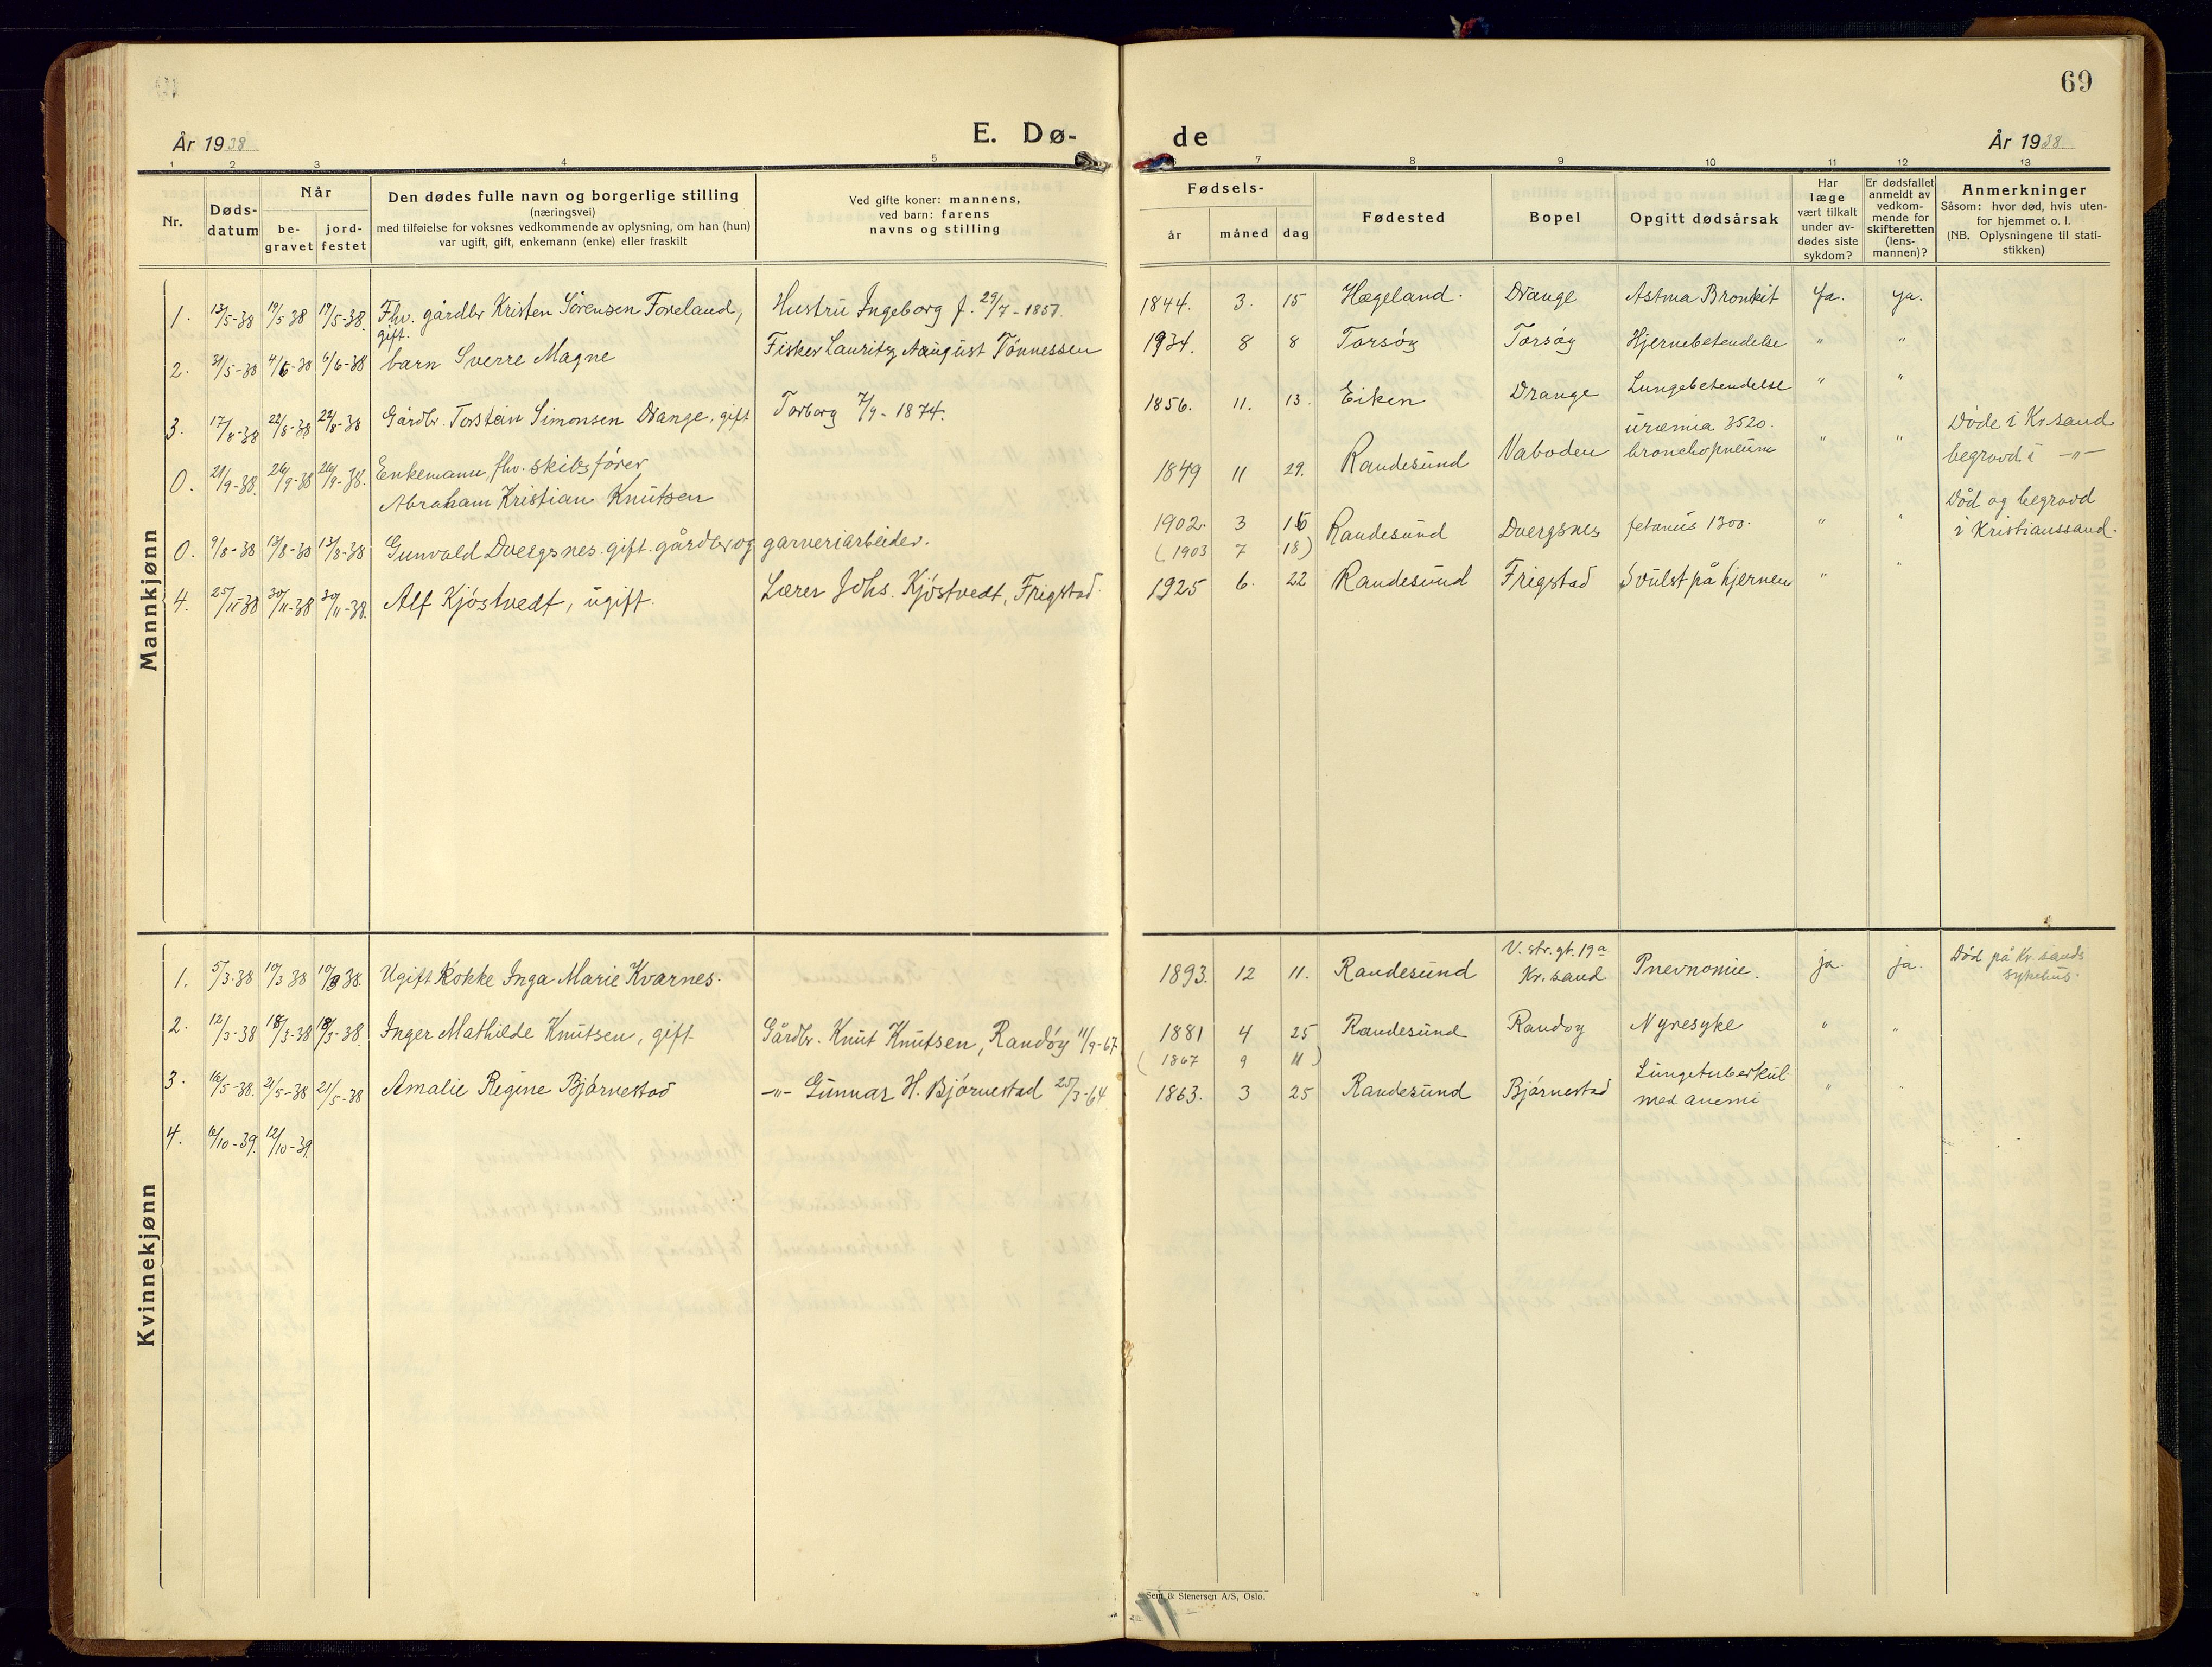 69
År 1938
E. Dø-
de
År 1938.
1 2 3 4 5 7 8 9 10 11 12 13
Nr.
Døds-
datum
Når
be-
gravet
jord-
festet
Den dødes fulle navn og borgerlige stilling
(næringsvei)
med tilføielse for voksnes vedkommende av oplysning, om han (hun)
var ugift, gift, enkemann (enke) eller fraskilt
Ved gifte koner: mannens,
ved barn: farens
navns og stilling
Fødsels-
år måned dag
Fødested
Bopel
Opgitt dødsårsak
Har
læge
vært tilkalt
under av-
dødes siste
sykdom?
Er dødsfallet
anmeldt av
vedkom-
mende for
skifteretten
(lens-
mannen)?
Anmerkninger
Såsom: hvor død, hvis uten-
for hjemmet o. l.
(NB. Oplysningene til stati-
stikken)
Mannkjønn
1. 13/5-38 19/5 38 19/5-38. Fhv. gårdbr Kristen Sørensen Foreland, Hustru Ingeborg f. 29/7-1857. 1844. 3. 15 Hægeland. Drange Astma Bronkit Ja. ja.
gift.
2. 31/5-38 4/6-38 6/6-38 barn Sverre Magne Fisker Lauritz August Tønnessen 1934. 8 8 Torsøy Torsøy Hjernebetendelse " "
3. 17/8-38 22/8-38 22/8-38 Gårdbr. Torstein Simonsen Drange, gift Torborg 7/9-1874. 1856. 11. 13. Eiken Drange Lungebetendelse " "
0. 21/9-38. 26/9-38 26/9-38. Enkemann, fhv. skibsfører
Abraham Kristian Knutsen 1849 11 29. Randesund Vaboden uræmia 3520.
bronchopneum " " Døde i Kr.sand
begravd i -"-
0. 9/8-38 13/8-38 13/8-38 Gunvald Dvergsnes. gift. gårdbr og garveriarbeider. 1902. 3 16 Randesund Dvergsnes tetanus 1300. " " Død og begravd
i Kristianssand.
(1903 7 18)
4. 25/11-38 30/11-38 30/11-38. Alf Kjøstvedt, ugift. Lærer Johs. Kjøstvedt, Frigstad. 1925 6. 22 Randesund Frigstad Svulst på hjernen " "
Kvinnekjønn
1. 5/3-38 10/3 38 10/3 38. Ugift kokke Inga Marie Kvarnes. 1893. 12 11. Randesund V. str. gt. 19a
Kr.sand Pnevnomie. ja. ja. Død på Kr.sands
sykehus.
2. 12/3-38 18/3-38 18/3-38. Inger Mathilde Knutsen, gift Gårdbr. Knut Knutsen, Randøy 11/9-67 1881 4 25 Randesund Randøy Nyresyke " "
(1867 9 11)
3. 16/5-38. 21/5-38 21/5-38 Amalie Regine Bjørnestad -"- Gunnar H. Bjørnestad 25/3-64. 1863. 3 25 Randesund Bjørnestad Lungetuberkul.
med anemi " "
4. 6/10-39. 12/10-39.
Sem & Stenersen A/S, Oslo.